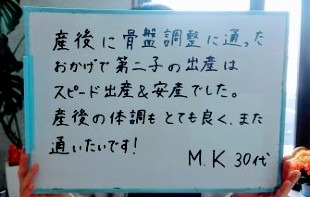 産後に骨盤調整に通った
おかげで第二子の出産は
スピード出産&安産でした。
産後の体調もとても良く、また
通いたいです!
M.K 30代